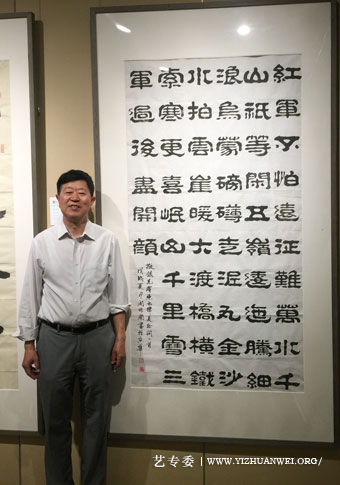 紅軍不怕遠征難萬水千
山祇等閑五嶺逶迤騰細
浪烏蒙磅礴走泥丸金沙
水拍雲崖暖大渡橋橫鐵
索寒更喜岷山千里雪三
軍過後盡開顏
艺专委 | WWW.YIZHUANWEI.ORG/